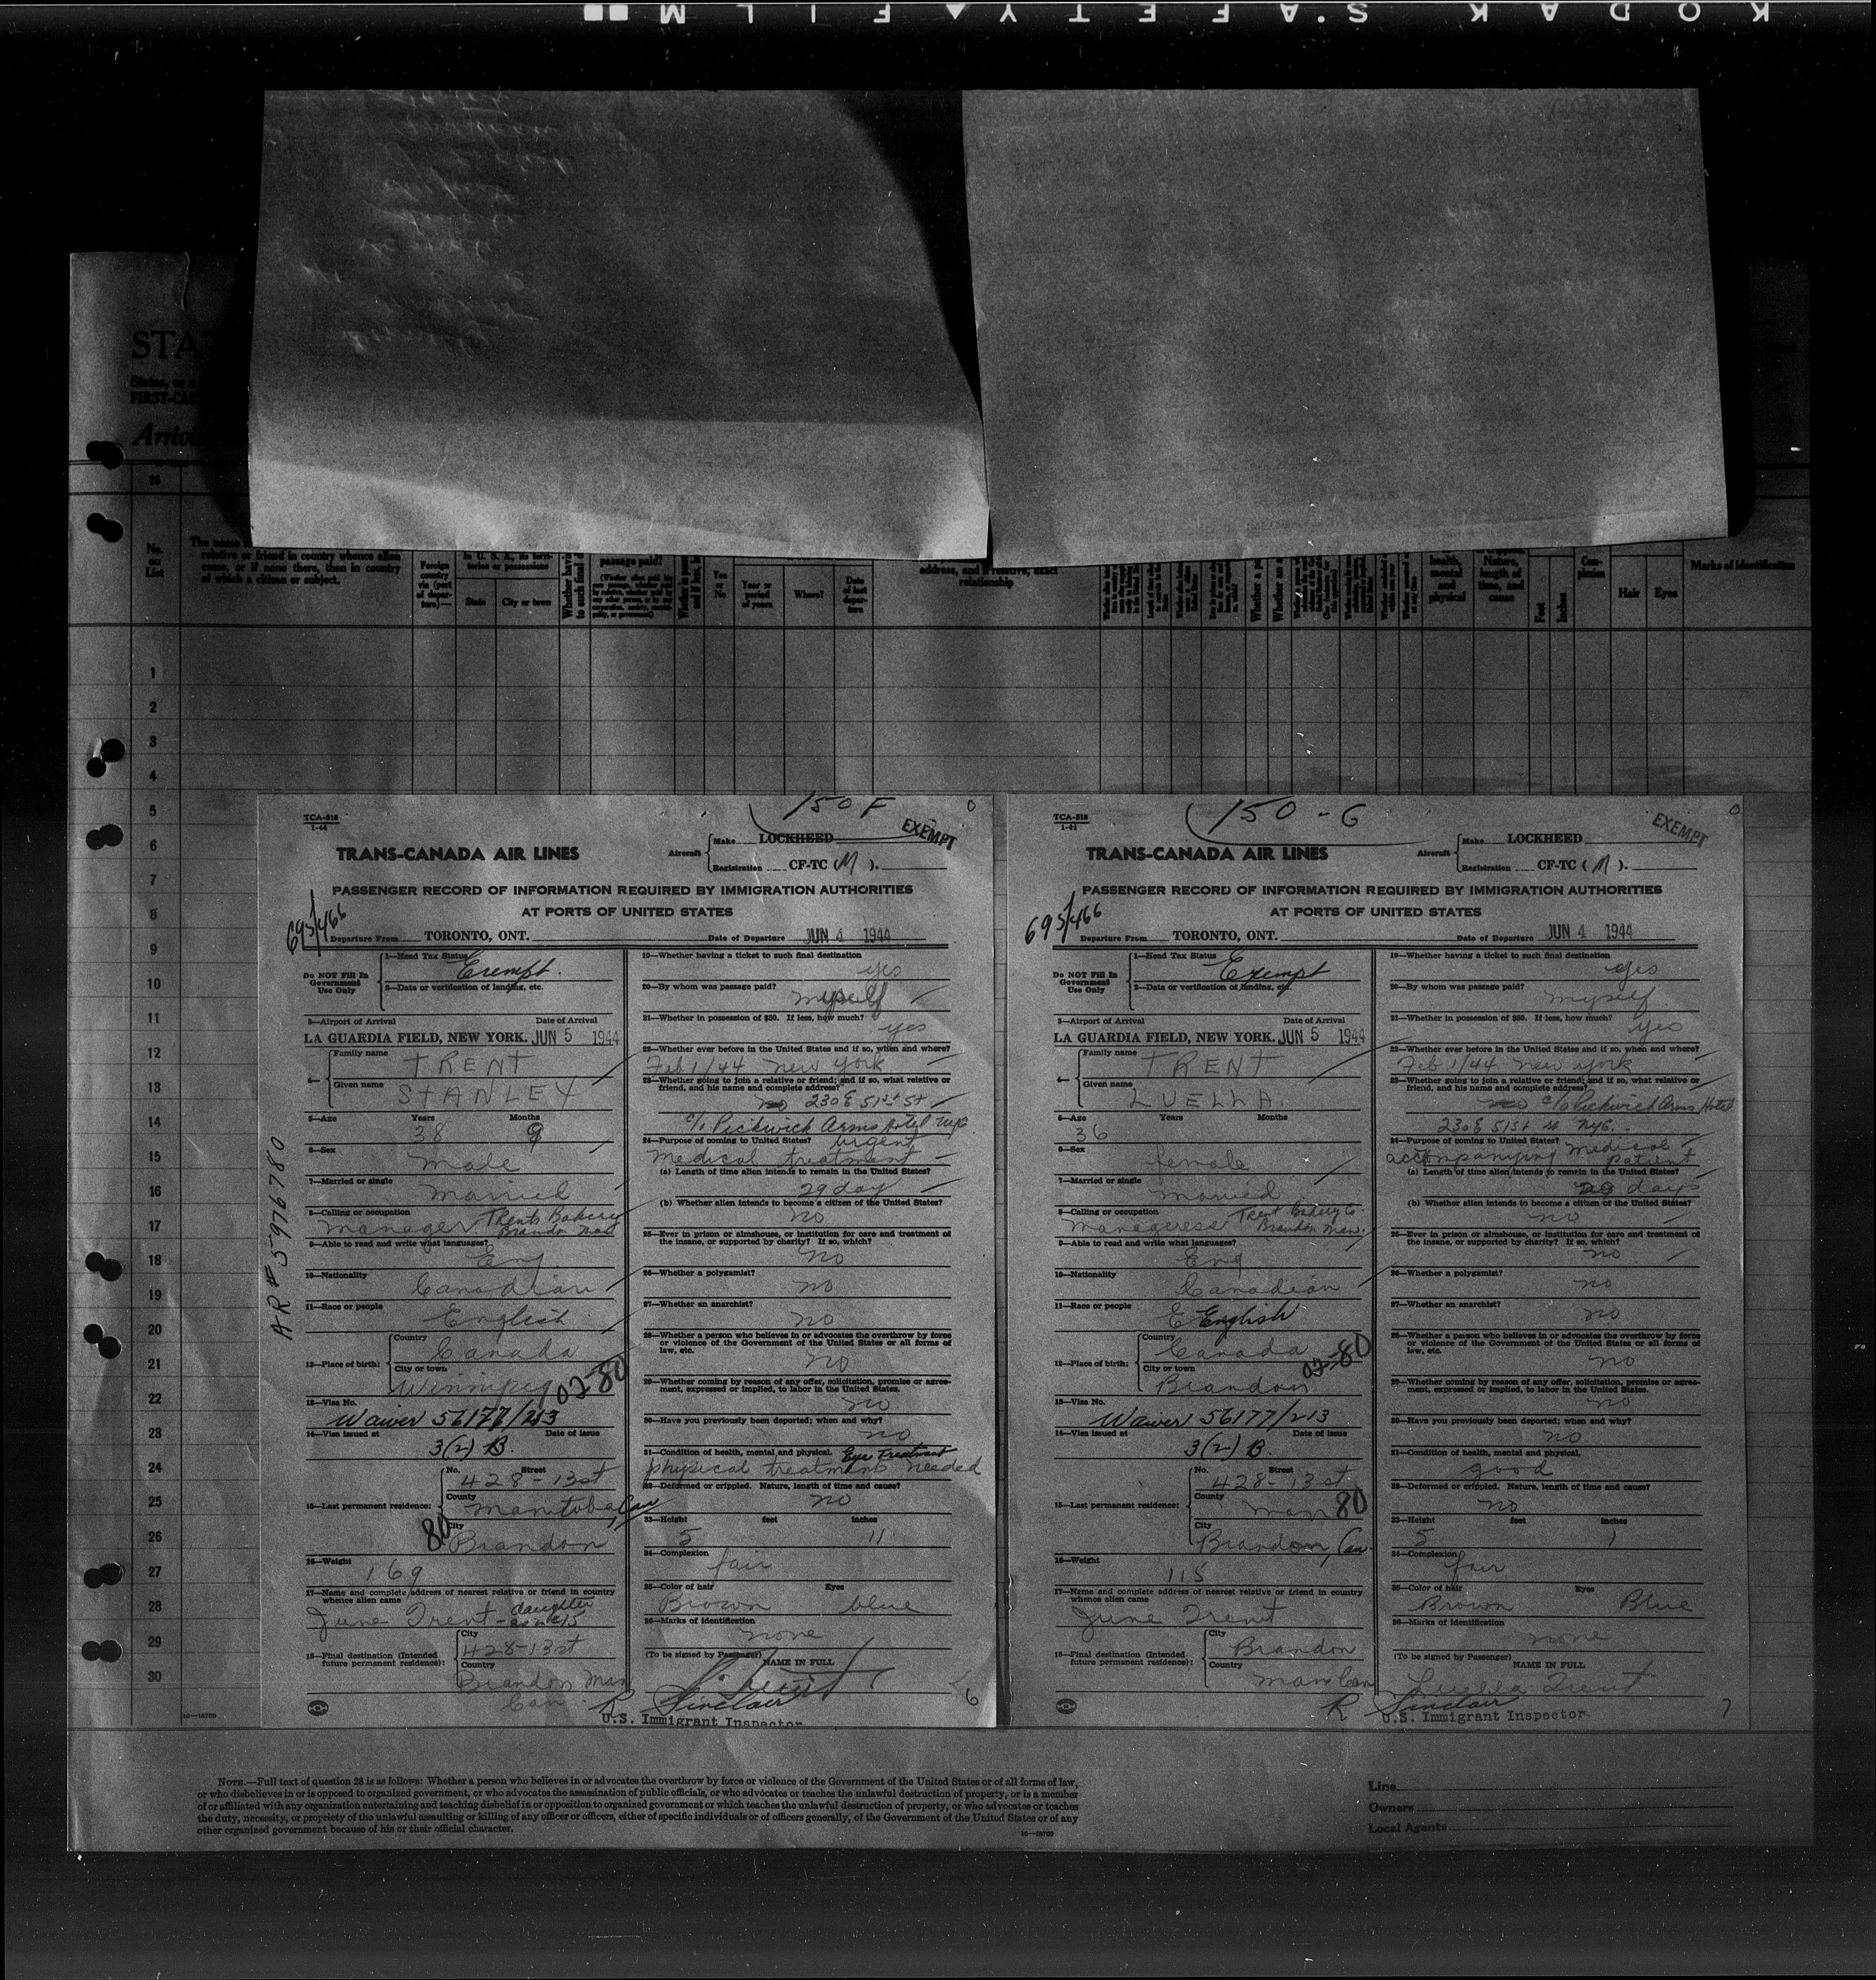 KODAK SAFETY FILM
STA
States, or a
FIRST-CA
Arriv
No. on List
relative or friend in country whence alien
came, or if none there, then in country
of which a citizen or subject.
Foreign country via (port of departure)—
In U. S. A., its territories or possessions
State
City or town
passage paid?
Yes or No
Year or period of years
Where?
Date of last departure
address, and if relative, exact relationship
health, mental and physical
Nature, length of time, and cause
Feet
Inches
Complexion
Hair
Eyes
Marks of identification
1
2
3
4
5
6
7
8
9
10
11
12
13
14
15
16
17
18
19
20
21
22
23
24
25
26
27
28
29
30
150 F
TCA-518
1-44
EXEMPT
TRANS-CANADA AIR LINES
Aircraft
Make LOCKHEED
Registration CF-TC (M).
PASSENGER RECORD OF INFORMATION REQUIRED BY IMMIGRATION AUTHORITIES
AT PORTS OF UNITED STATES
695/466
Departure From TORONTO, ONT. Date of Departure JUN 4 1944
Do NOT Fill In Government Use Only
1—Head Tax Status Exempt.
2—Date or verification of landing, etc.
3—Airport of Arrival Date of Arrival
LA GUARDIA FIELD, NEW YORK. JUN 5 1944
4— Family name TRENT
Given name STANLEY
5—Age Years Months
38 9
6—Sex
male
7—Married or single
Married
8—Calling or occupation
manager Trents Bakery
Brandon Man
9—Able to read and write what languages?
Eng
10—Nationality
Canadian
11—Race or people
English
12—Place of birth: Country Canada
City or town
Winnipeg 02-80
13—Visa No.
Waiver 56177/213
14—Visa issued at Date of issue
3(2) B.
15—Last permanent residence:
No. Street
428-13 st
County
Manitoba, Can
80
City
Brandon
16—Weight
169
17—Name and complete address of nearest relative or friend in country
whence alien came
June Trent - daughter
18—Final destination (Intended
future permanent residence):
City
428-13 st
Country
Brandon Man
Can.
AR# 5976780
19—Whether having a ticket to such final destination
yes
20—By whom was passage paid?
myself
21—Whether in possession of $50. If less, how much?
yes
22—Whether ever before in the United States and if so, when and where?
Feb 1/44 New York
23—Whether going to join a relative or friend; and if so, what relative or
friend, and his name and complete address?
no 230 E 51st St
c/o Pickwick Arms Hotel NYC.
24—Purpose of coming to United States? Urgent
Medical treatment
(a) Length of time alien intends to remain in the United States?
29 day
(b) Whether alien intends to become a citizen of the United States?
no
25—Ever in prison or almshouse, or institution for care and treatment of
the insane, or supported by charity? If so, which?
no
26—Whether a polygamist?
no
27—Whether an anarchist?
no
28—Whether a person who believes in or advocates the overthrow by force
or violence of the Government of the United States or all forms of
law, etc.
no
29—Whether coming by reason of any offer, solicitation, promise or agree-
ment, expressed or implied, to labor in the United States.
no
30—Have you previously been deported; when and why?
no
31—Condition of health, mental and physical. Eye Treatment
physical treatment needed
32—Deformed or crippled. Nature, length of time and cause?
no
33—Height feet inches
5 11
34—Complexion
fair
35—Color of hair Eyes
Brown blue
36—Marks of identification
none
(To be signed by Passenger)
NAME IN FULL
S. Trent
R Sinclair
U.S. Immigrant Inspector
6
150-G
TCA-518
1-44
EXEMPT
TRANS-CANADA AIR LINES
Aircraft
Make LOCKHEED
Registration CF-TC (M).
PASSENGER RECORD OF INFORMATION REQUIRED BY IMMIGRATION AUTHORITIES
AT PORTS OF UNITED STATES
695/466
Departure From TORONTO, ONT. Date of Departure JUN 4 1944
Do NOT Fill In Government Use Only
1—Head Tax Status
Exempt
2—Date or verification of landing, etc.
3—Airport of Arrival Date of Arrival
LA GUARDIA FIELD, NEW YORK. JUN 5 1944
4— Family name TRENT
Given name LUELLA.
5—Age Years Months
36
6—Sex
female
7—Married or single
Married
8—Calling or occupation
Manageress Trent Bakery Co.
Brandon Man.
9—Able to read and write what languages?
Eng
10—Nationality
Canadian
11—Race or people
E English
12—Place of birth: Country Canada
City or town
Brandon 02-80
13—Visa No.
Waiver 56177/213
14—Visa issued at Date of issue
3(2) B.
15—Last permanent residence:
No. Street
428-13 st
County
Man 80
City
Brandon, Can.
16—Weight
115
17—Name and complete address of nearest relative or friend in country
whence alien came
June Trent
18—Final destination (Intended
future permanent residence):
City
Brandon
Country
Man Can
19—Whether having a ticket to such final destination
yes
20—By whom was passage paid?
myself
21—Whether in possession of $50. If less, how much?
yes
22—Whether ever before in the United States and if so, when and where?
Feb 1/44 New York
23—Whether going to join a relative or friend; and if so, what relative or
friend, and his name and complete address?
c/o Pickwick Arms Hotel
230 E 51st St NYC.
24—Purpose of coming to United States? Medical
accompanying patient
(a) Length of time alien intends to remain in the United States?
29 days
(b) Whether alien intends to become a citizen of the United States?
no
25—Ever in prison or almshouse, or institution for care and treatment of
the insane, or supported by charity? If so, which?
no
26—Whether a polygamist?
no
27—Whether an anarchist?
no
28—Whether a person who believes in or advocates the overthrow by force
or violence of the Government of the United States or all forms of
law, etc.
no
29—Whether coming by reason of any offer, solicitation, promise or agree-
ment, expressed or implied, to labor in the United States.
no
30—Have you previously been deported; when and why?
no
31—Condition of health, mental and physical.
good
32—Deformed or crippled. Nature, length of time and cause?
no
33—Height feet inches
5 1
34—Complexion
fair
35—Color of hair Eyes
Brown Blue
36—Marks of identification
none
(To be signed by Passenger)
NAME IN FULL
Luella Trent
R Sinclair
U.S. Immigrant Inspector
7
16—18709
NOTE.—Full text of question 28 is as follows: Whether a person who believes in or advocates the overthrow by force or violence of the Government of the United States or of all forms of law,
or who disbelieves in or is opposed to organized government, or who advocates the assassination of public officials, or who advocates or teaches the unlawful destruction of property, or is a member
of or affiliated with any organization entertaining and teaching disbelief in or opposition to organized government or which teaches the unlawful destruction of property, or who advocates or teaches
the duty, necessity, or propriety of the unlawful assaulting or killing of any officer or officers, either of specific individuals or of officers generally, of the Government of the United States or of any
other organized government because of his or their official character.
16—18709
Line
Owners
Local Agents